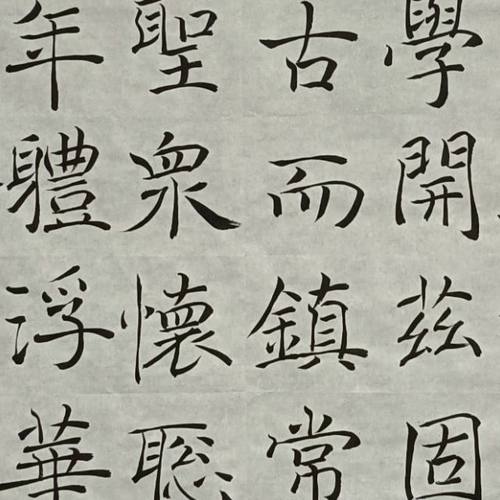 學開茲固
古而鎮常
聖衆懷聡
年軆浮華